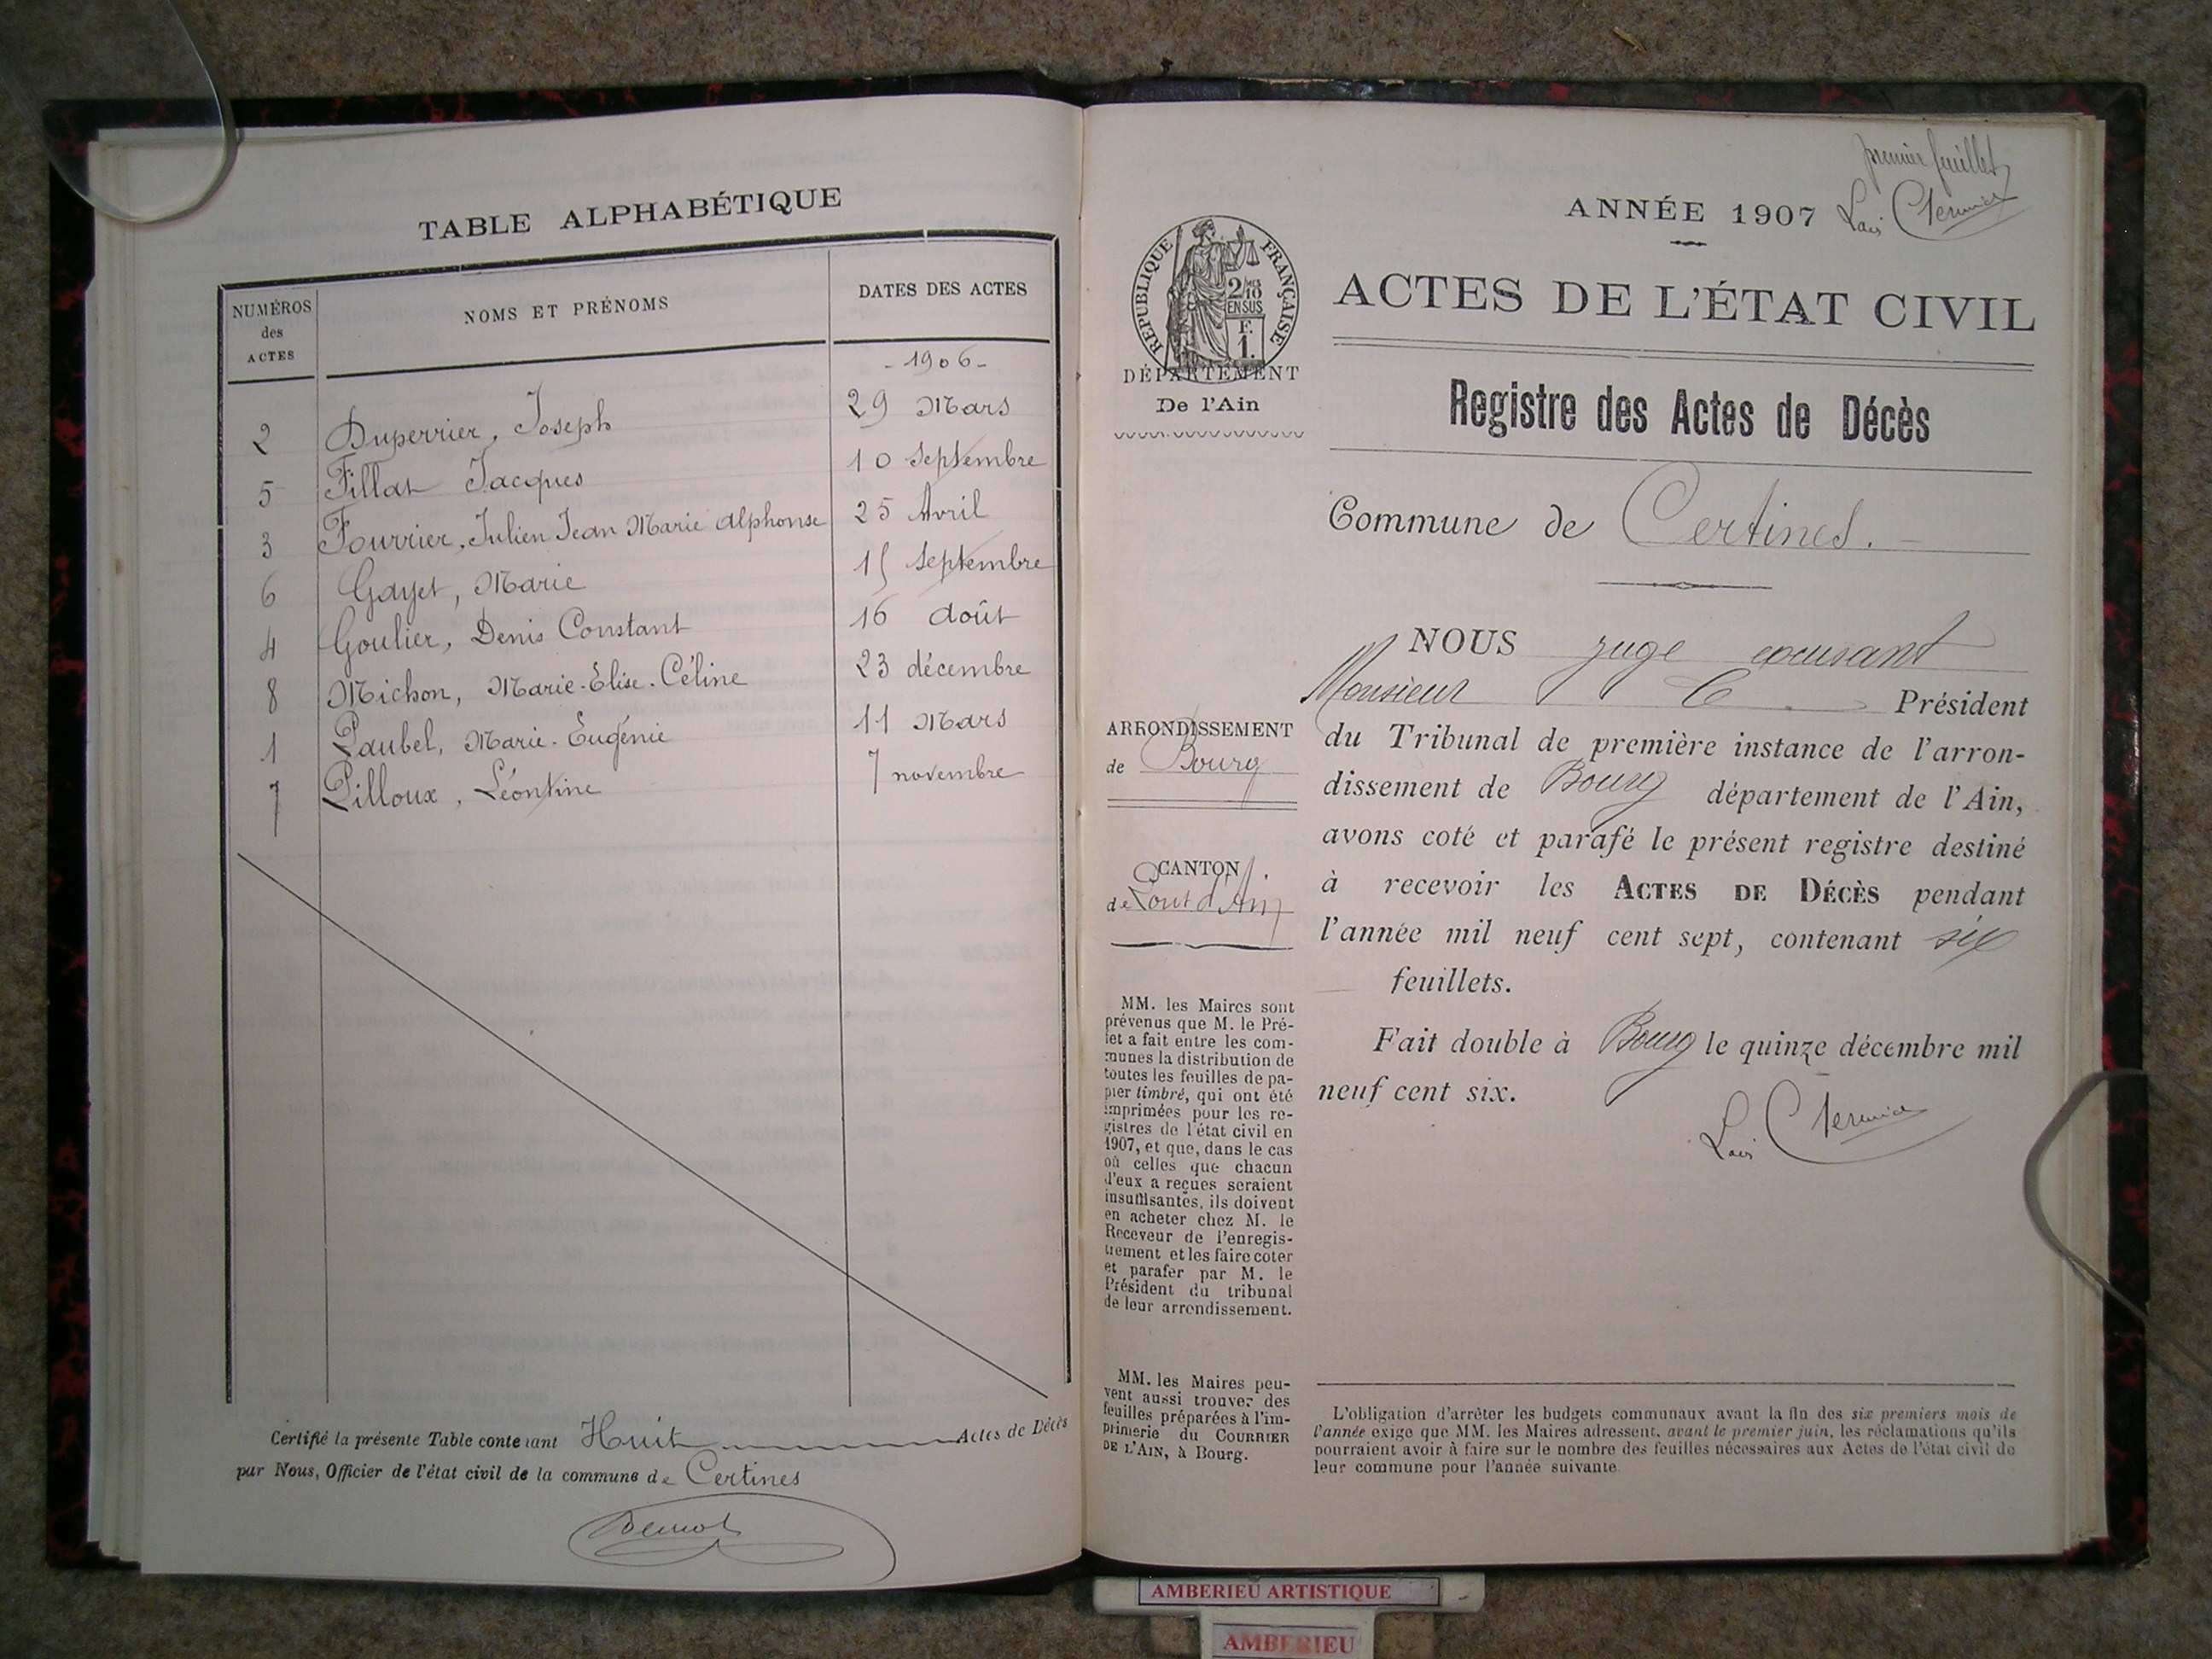 TABLE ALPHABÉTIQUE
NUMÉROS des ACTES
NOMS ET PRÉNOMS
DATES DES ACTES
- 1906 -
2 Duperrier, Joseph 29 Mars
5 Fillat Jacques 10 septembre
3 Fourrier, Julien Jean Marie Alphonse 25 Avril
6 Gayet, Marie 15 septembre
4 Goulier, Denis Constant 16 août
8 Michon, Marie-Elise-Céline 23 décembre
1 Paubel, Marie-Eugénie 11 Mars
7 Pilloux, Léontine 7 novembre
Certifié la présente Table contenant Huit Actes de Décès
par Nous, Officier de l'état civil de la commune de Certines
premier feuillet
ANNÉE 1907
RÉPUBLIQUE FRANÇAISE
2/10 EN SUS
F. 1.
DÉPARTEMENT
De l'Ain
ACTES DE L'ÉTAT CIVIL
Registre des Actes de Décès
Commune de Certines.
NOUS juge
Monsieur Président
du Tribunal de première instance de l'arron-
dissement de Bourg département de l'Ain,
avons coté et parafé le présent registre destiné
à recevoir les ACTES DE DÉCÈS pendant
l'année mil neuf cent sept, contenant six
feuillets.
Fait double à Bourg le quinze décembre mil
neuf cent six.
ARRONDISSEMENT
de Bourg
CANTON
de Pont d'Ain
MM. les Maires sont
prévenus que M. le Pré-
fet a fait entre les com-
munes la distribution de
toutes les feuilles de pa-
pier timbré, qui ont été
imprimées pour les re-
gistres de l'état civil en
1907, et que, dans le cas
où celles que chacun
d'eux a reçues seraient
insuffisantes, ils doivent
en acheter chez M. le
Receveur de l'enregis-
trement et les faire coter
et parafer par M. le
Président du tribunal
de leur arrondissement.
MM. les Maires peu-
vent aussi trouver des
feuilles préparées à l'im-
primerie du COURRIER
DE L'AIN, à Bourg.
L'obligation d'arrêter les budgets communaux avant la fin des six premiers mois de
l'année exige que MM. les Maires adressent, avant le premier juin, les réclamations qu'ils
pourraient avoir à faire sur le nombre des feuilles nécessaires aux Actes de l'état civil de
leur commune pour l'année suivante
AMBERIEU ARTISTIQUE
AMBERIEU